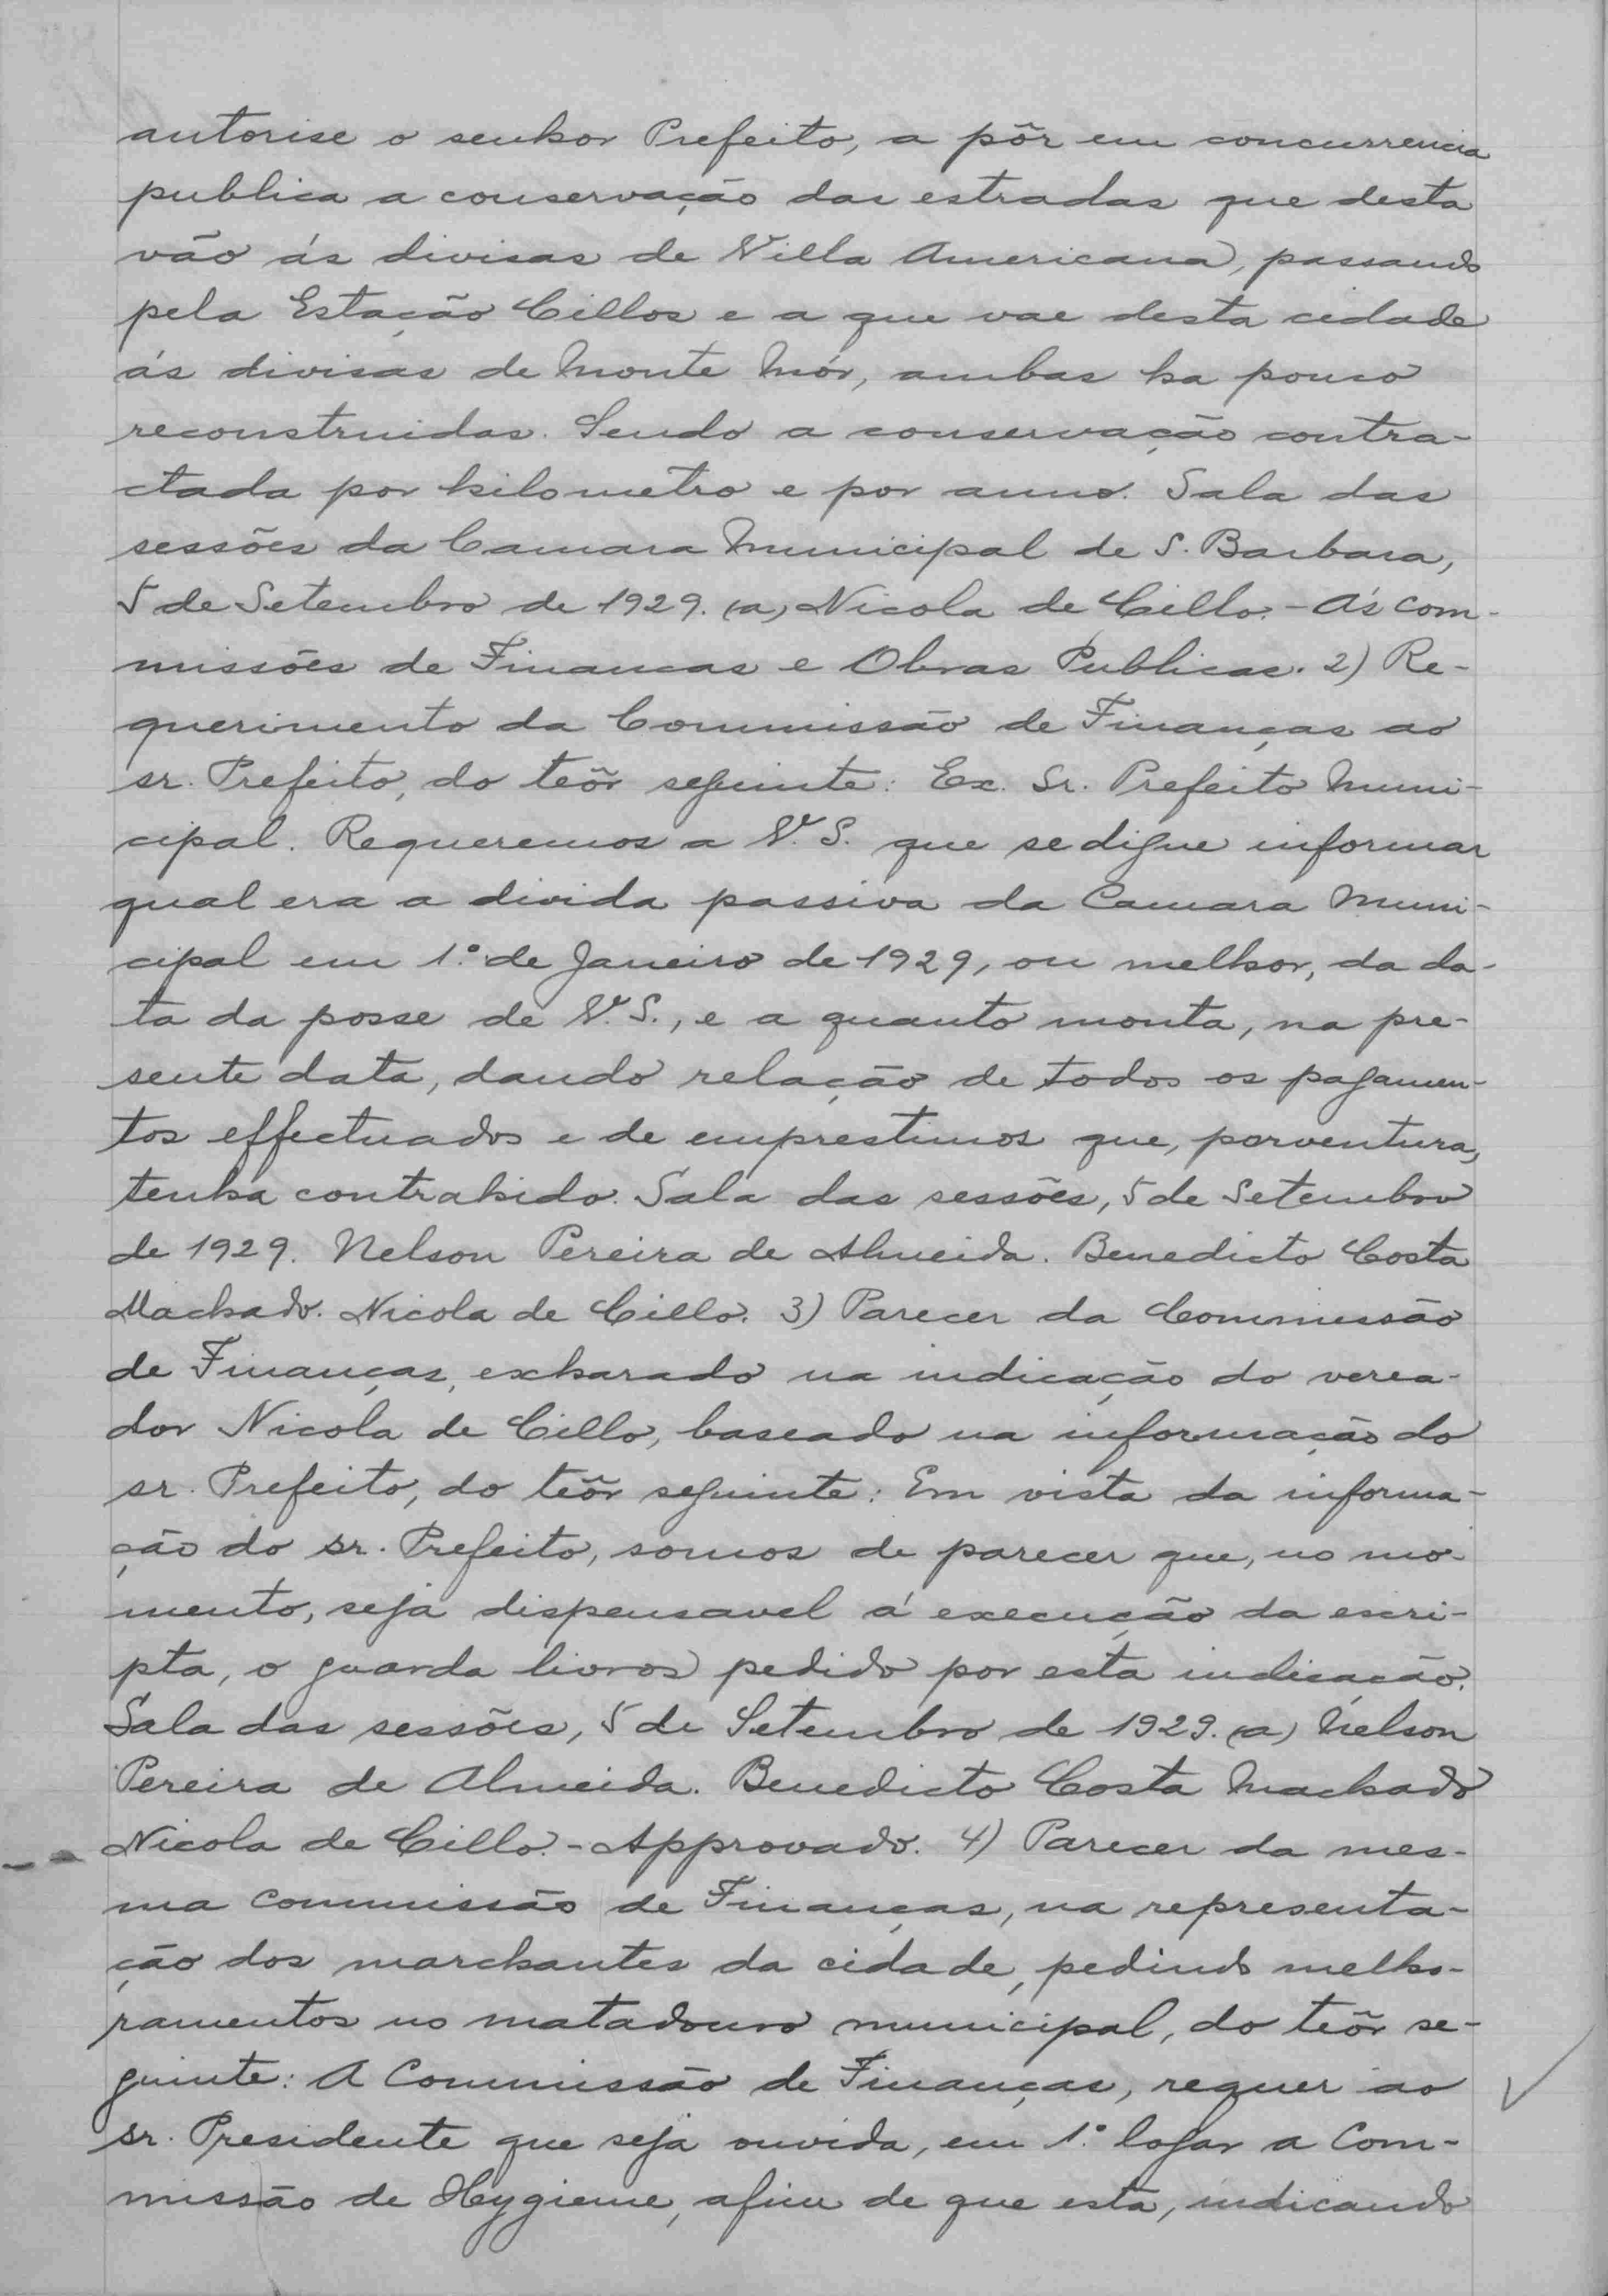 autorise o senhor Prefeito, a pôr em concurrencia
publica a conservação das estradas que desta
vão ás divisas de Villa Americana, passando
pela Estação Cillos e a que vae desta cidade
ás divisas de Monte Mór, ambas ha pouco
reconstruidas. Sendo a conservação contra-
ctada por kilometro e por anno. Sala das
sessões da Camara Municipal de S. Barbara,
5 de Setembro de 1929. (a) Nicola de Cillo. - Ás Com-
missões de Financas e Obras Publicas. 2) Re-
querimento da Commissão de Finanças ao
sr. Prefeito, do teôr seguinte: Ex. Sr. Prefeito Muni-
cipal. Requeremos a V. S. que se digne informar
qual era a divida passiva da Camara Muni-
cipal em 1º de Janeiro de 1929, ou melhor, da da-
ta da posse de V. S., e a quanto monta, na pre-
sente data, dando relação de todos os pagamen-
tos effectuados e de emprestimos que, porventura,
tenha contrahido. Sala das sessões, 5 de Setembro
de 1929. Nelson Pereira de Almeida. Benedicto Costa
Machado. Nicola de Cillo. 3) Parecer da Commissão
de Finanças, exharado na indicação do verea-
dor Nicola de Cillo, baseado na informação do
sr. Prefeito, do teôr seguinte: Em vista da informa-
ção do sr. Prefeito, somos de parecer que, no mo-
mento, seja dispensavel á execução da escri-
pta, o guarda livros pedido por esta indicação.
Sala das sessões, 5 de Setembro de 1929. (a) Nelson
Pereira de Almeida. Benedicto Costa Machado
Nicola de Cillo. - Approvado. 4) Parecer da mes-
ma Commissão de Finanças, na representa-
ção dos marchantes da cidade, pedindo melho-
ramentos no matadouro municipal, do teôr se-
guinte: A Commissão de Finanças, requer ao
sr. Presidente que seja ouvida, em 1º logar a Com-
missão de Hygiene, afim de que esta, indicando